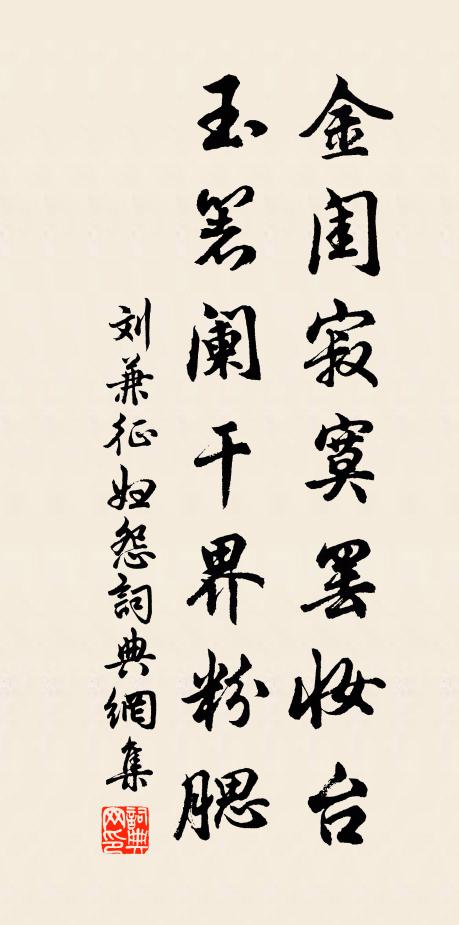 金闺寂寞罢妆台
玉箸阑干界粉腮
刘兼征妇怨詞典網集
詞典網印